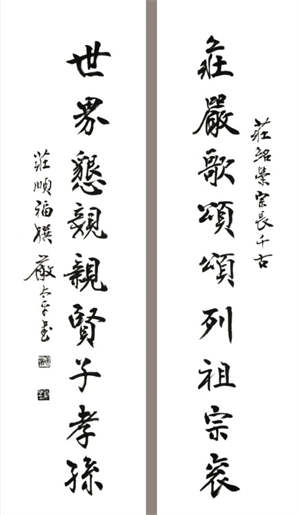 莊紹榮宗長千古
莊嚴歌頌頌列祖宗
世界懇親親賢子孝孫
莊順福撰 太平書